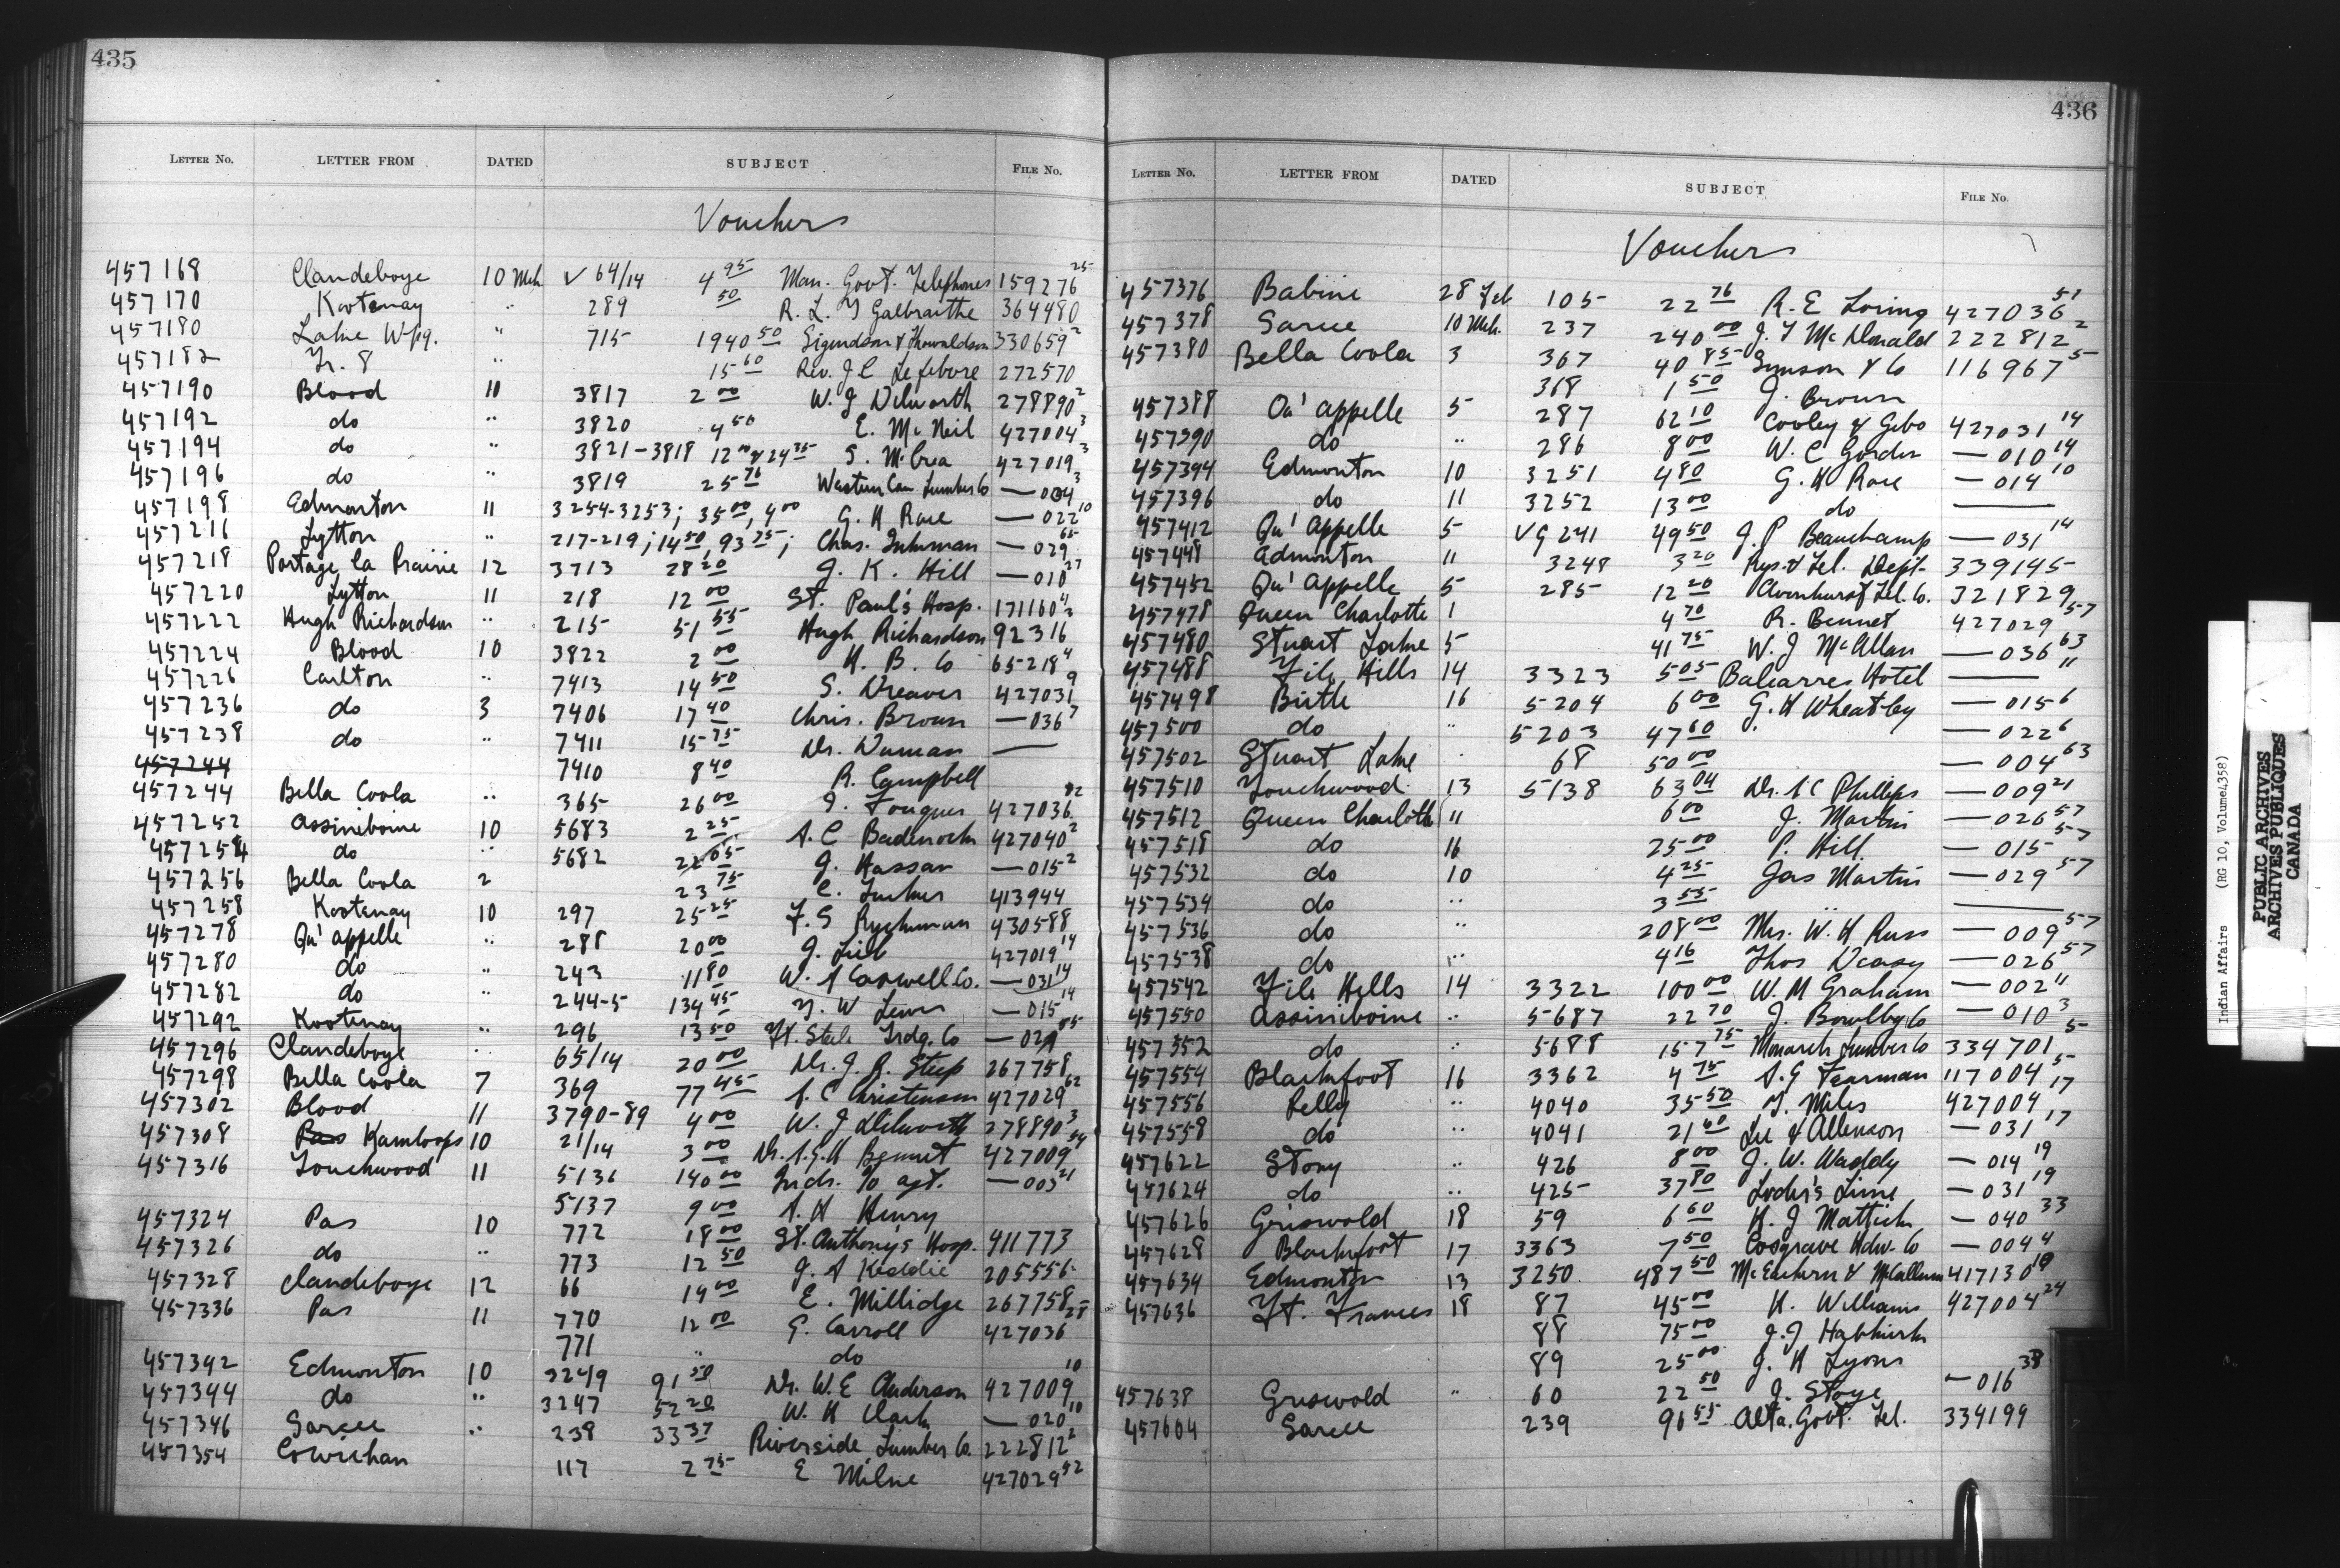 435
LETTER NO. LETTER FROM DATED SUBJECT FILE No.
Vouchers
457168 Clandeboye 10 Mch ✓ 64/14 4 95 Man. Govt. Telephones 159276 25
457170 Kootenay " 289 50 R. L. T Galbraithe 364480
457180 Lake Wpg. " 715 1940 50 Sigurdson & Thorvaldson 330659 2
457182 Tr. 8 " 15 60 Rev. J C Lefebvre 272570
457190 Blood 10 3817 2 00 W. J Dilworth 278890 2
457192 do " 3820 4 50 E. McNeil 427004 3
457194 do " 3821-3818 12 00 & 24 75 S. McCrea 427019 3
457196 do " 3819 25 76 Western Can Lumber Co — 004 3
457198 Edmonton 11 3254-3253; 35 00, 4 00 G. H Race — 022 10
457216 Lytton " 217-219; 14 50, 93 75; Chas. — 029 65
457218 Portage la Prairie 12 3713 28 20 J. K. Hill — 010 27
457220 Lytton 11 218 12 00 St. Paul's Hosp. 171160 4
457222 Hugh Richardson " 215 51 55 Hugh Richardson 92316 2
457224 Blood 10 3822 2 00 H. B. Co 65218 4
457226 Carlton " 7413 14 50 S. Dreaver 427031 9
457236 do 3 7406 17 40 Chris. Brown — 036 7
457238 do " 7411 15 75 Dr. Duman —
457244 7410 8 40 R. Campbell
457244 Bella Coola " 365 26 00 J. Fougner 427036 82
457252 Assiniboine 10 5683 2 25 A. C Badenoch 427040 2
457254 do " 5682 22 65 J. Hassan — 015 2
457256 Bella Coola 2 23 75 C. Tucker 413944
457258 Kootenay 10 297 25 25 F. S Ryckman 430588
457278 Qu'appelle " 288 20 00 J. 427019 14
457280 do " 243 11 80 W. A Caswell Co. — 031 14
457282 do " 244-5 134 45 W Lewis — 015 14
457292 Kootenay " 296 13 50 Ft. Steele Trdg. Co — 029 85
457296 Clandeboye " 65/14 20 00 Dr. J. R. Steep 267758
457298 Bella Coola 7 369 77 45 A. C Christensen 427029 62
457302 Blood 11 3790-89 4 00 W. J Dilworth 278890 3
457308 Pass Kamloops 10 21/14 3 00 Dr. Bennet 427009 54
457316 Touchwood 11 5136 140 00 Inds. To agt. — 003 21
5137 9 00 A. H Henry
457324 Pas 10 772 18 00 St. Anthony's Hosp. 411773
457326 do " 773 12 50 J. A Keddie 205556
457328 Clandeboye 12 66 19 00 E. Millidge 267758
457336 Pas 11 770 12 00 G. Carroll 427036 28
771 " do
457342 Edmonton 10 3249 91 50 Dr. W. E Anderson 427009 10
457344 do " 3247 52 20 W. H Clark — 020 10
457346 Sarcee " 238 33 37 Riverside Lumber Co. 222812 2
457354 Cowichan 117 2 75 E Milne 427029 52
436
LETTER No. LETTER FROM DATED SUBJECT FILE No.
Vouchers
457376 Babine 28 Feb 105 22 76 R. E Loring 427036 51
457378 Sarcee 10 Mch. 237 240 00 J. T McDonald 222812 2
457380 Bella Coola 3 367 40 85 Simson & Co 116967 5
368 1 50 J. Brown
457388 Qu'appelle 5 287 62 10 Cooley & Gibo 427031 14
457390 do " 286 8 00 W. C Gordon — 010 14
457394 Edmonton 10 3251 4 80 G. H Race — 014 10
457396 do 11 3252 13 00 do —
457412 Qu'Appelle 5 VG 241 49 50 J. P Beauchamp — 031 14
457448 Edmonton 11 3248 3 20 Rys. & Tel. Dept. 339145
457452 Qu'Appelle 5 285 12 20 Tel. Co. 321829
457478 Queen Charlotte 1 4 70 R. Bennet 427029 57
457480 Stuart Lake 5 41 75 W. J McAllan — 036 63
457488 File Hills 14 3323 5 05 Balcarres Hotel — "
457498 Birtle 16 5204 6 00 G. H Wheatley — 015 6
457500 do " 5203 47 60 — 022 6
457502 Stuart Lake " 68 50 00 — 004 63
457510 Touchwood 13 5138 63 04 Dr. A C Phillips — 009 21
457512 Queen Charlotte 11 6 00 J. Martin — 026 57
457518 do 16 25 00 P. Hill — 015 57
457532 do 10 4 25 Jas Martin — 029 57
457534 do " 3 55 " —
457536 do " 208 00 Mrs. W. H Russ — 009 57
457538 do " 4 16 Thos Deasy — 026 57
457542 File Hills 14 3322 100 00 W. M Graham — 002 11
457550 Assiniboine " 5687 22 70 J. Bowlby Co — 010 3
457552 do " 5688 157 75 Monarch Lumber Co 334701 5
457554 Blackfoot 16 3362 4 75 A. G Fearman 117004 5
457556 Pelly " 4040 35 50 T. Miles 427004 17
457558 do " 4041 21 60 Lee & Allenson — 031 17
457622 Stony " 426 8 00 J. W. Waddy — 014 19
457624 do " 425 37 80 Loder's Lime — 031 19
457626 Griswold 18 59 6 60 H. J Mattick — 040 33
457628 Blackfoot 17 3363 7 50 Cosgrave Hdw. Co — 004 4
457634 Edmonton 13 3250 487 50 McEachern & McCallum 417130 19
457636 Ft. Frances 18 87 45 00 H. Williams 427004 24
88 75 00 J. J
89 25 00 J. H Lyons
457638 Griswold " 60 22 50 J. Staye — 016 33
457604 Sarcee 239 96 55 Alta. Govt. Tel. 339199
Indian Affairs (RG 10, Volume 4358)
PUBLIC ARCHIVES
ARCHIVES PUBLIQUES
CANADA